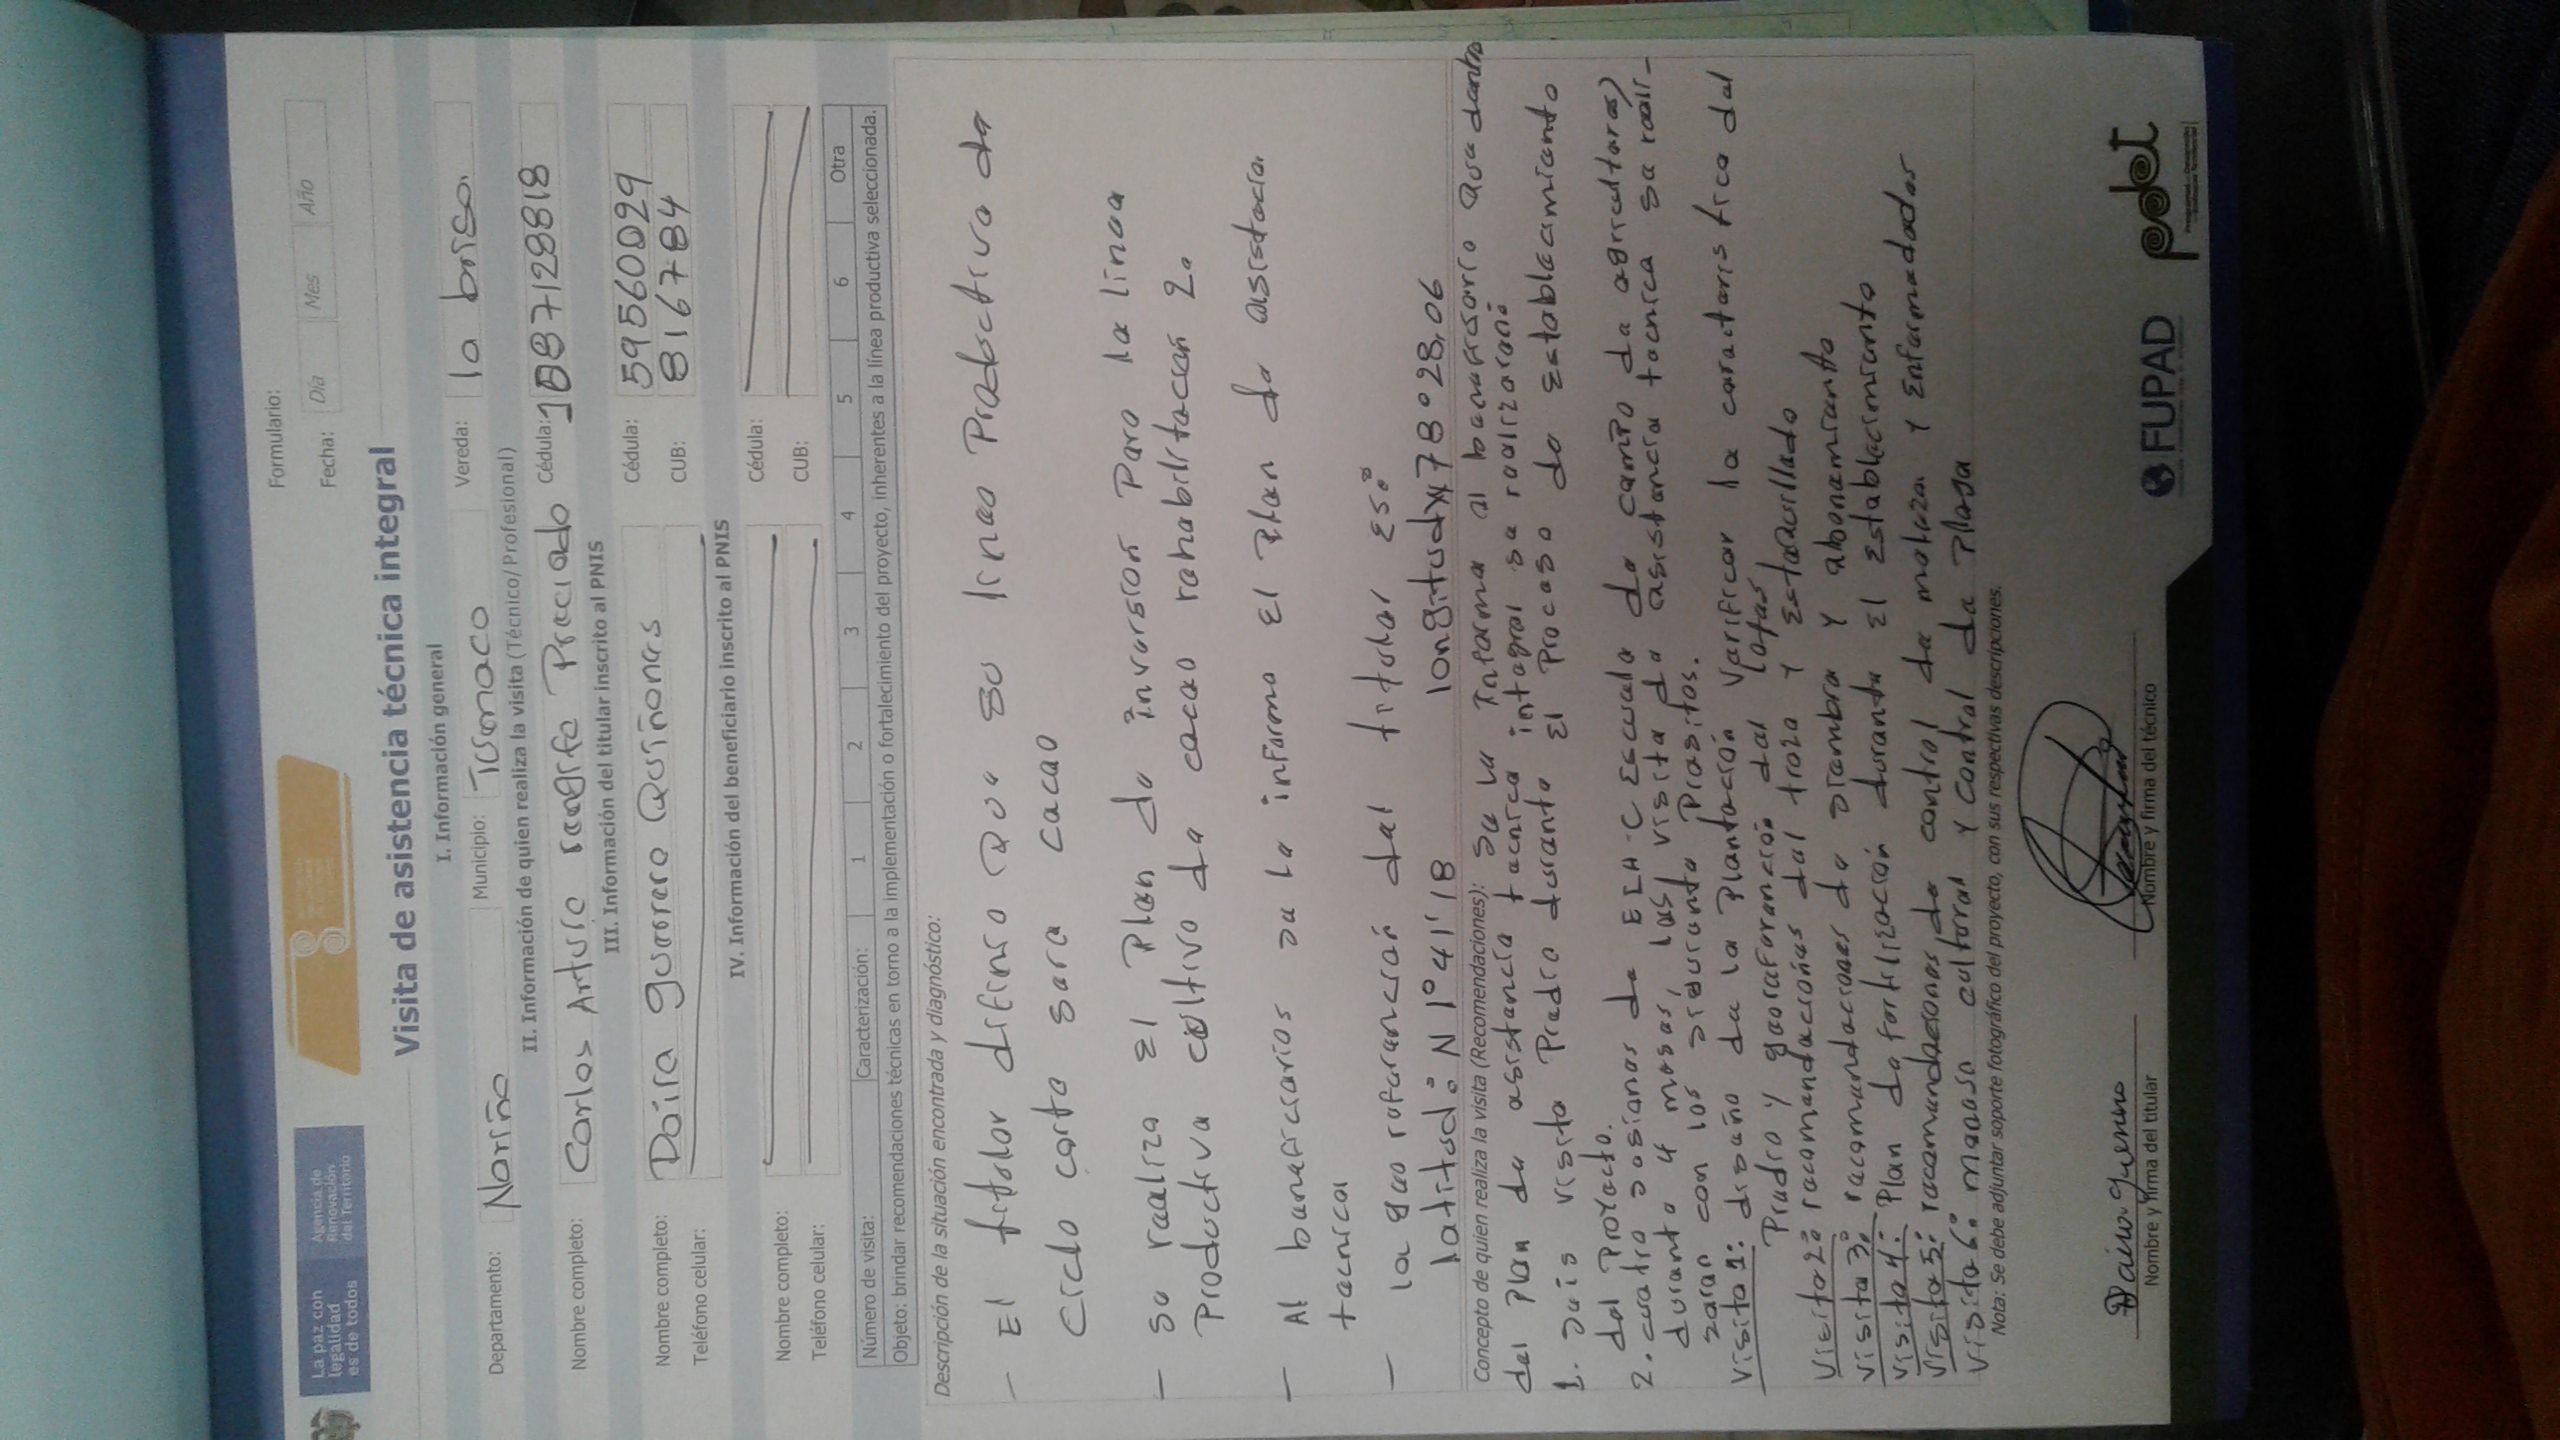 La paz con
legalidad
es de todos
Agencia de
Renovación
del Territorio
Formulario:
Fecha: Día Mes Año
Visita de asistencia técnica integral
I. Información general
Departamento: Nariño Municipio: Tumaco Vereda: la brisa
II. Información de quien realiza la visita (Técnico/Profesional)
Nombre completo: Carlos Arturo Preciado Cédula: 1087128818
III. Información del titular inscrito al PNIS
Nombre completo: Daira guerrero Quiñones Cédula: 59560029
Teléfono celular: CUB: 816784
IV. Información del beneficiario inscrito al PNIS
Nombre completo: Cédula:
Teléfono celular: CUB:
Número de visita: Caracterización: 1 2 3 4 5 6 Otra
Objeto: brindar recomendaciones técnicas en torno a la implementación o fortalecimiento del proyecto, inherentes a la línea productiva seleccionada.
Descripción de la situación encontrada y diagnóstico:
- El titular difinio Que su linea Productiva de
ciclo corto sera cacao
- se realiza El Plan de inversion Para la linea
Productiva cultivo de cacao rehabilitacion 2.
- Al beneficiarios se le informo El Plan de asistecia
tecnica
- la geo referencian del titular Es:
latitud: N 1°41'18 longitud 78°028,06
Concepto de quien realiza la visita (Recomendaciones): se le Informa al beneficiario Que dentro
del Plan de asistencia tecnica integral se realizaran:
1. seis visita Predio durante El Proceso de Establecimiento
del Proyecto.
2. cuatro sesiones de ECA-C Escuela de campo de agricultores)
durante 4 meses, las visita de asistencia tecnica se reali-
zaran con los siguiente Prositos.
Visita 1: diseño de la Plantacion Verificar la caracteristica del
Predio y georeferencion del lotes
Visita 2: recomendacioñes del trazo y Estaquillado
Visita 3: recomendaciones de siembra y abonamiento
Visita 4: Plan de fertilizacion durante El Establecimiento
Visita 5: recomendaciones de control de maleza y Enfermedades
Visita 6: manejo cultural y control de Plaga
Nota: Se debe adjuntar soporte fotográfico del proyecto, con sus respectivas descripciones.
Daira guerrero
Nombre y firma del titular
Nombre y firma del técnico
FUPAD
pdet